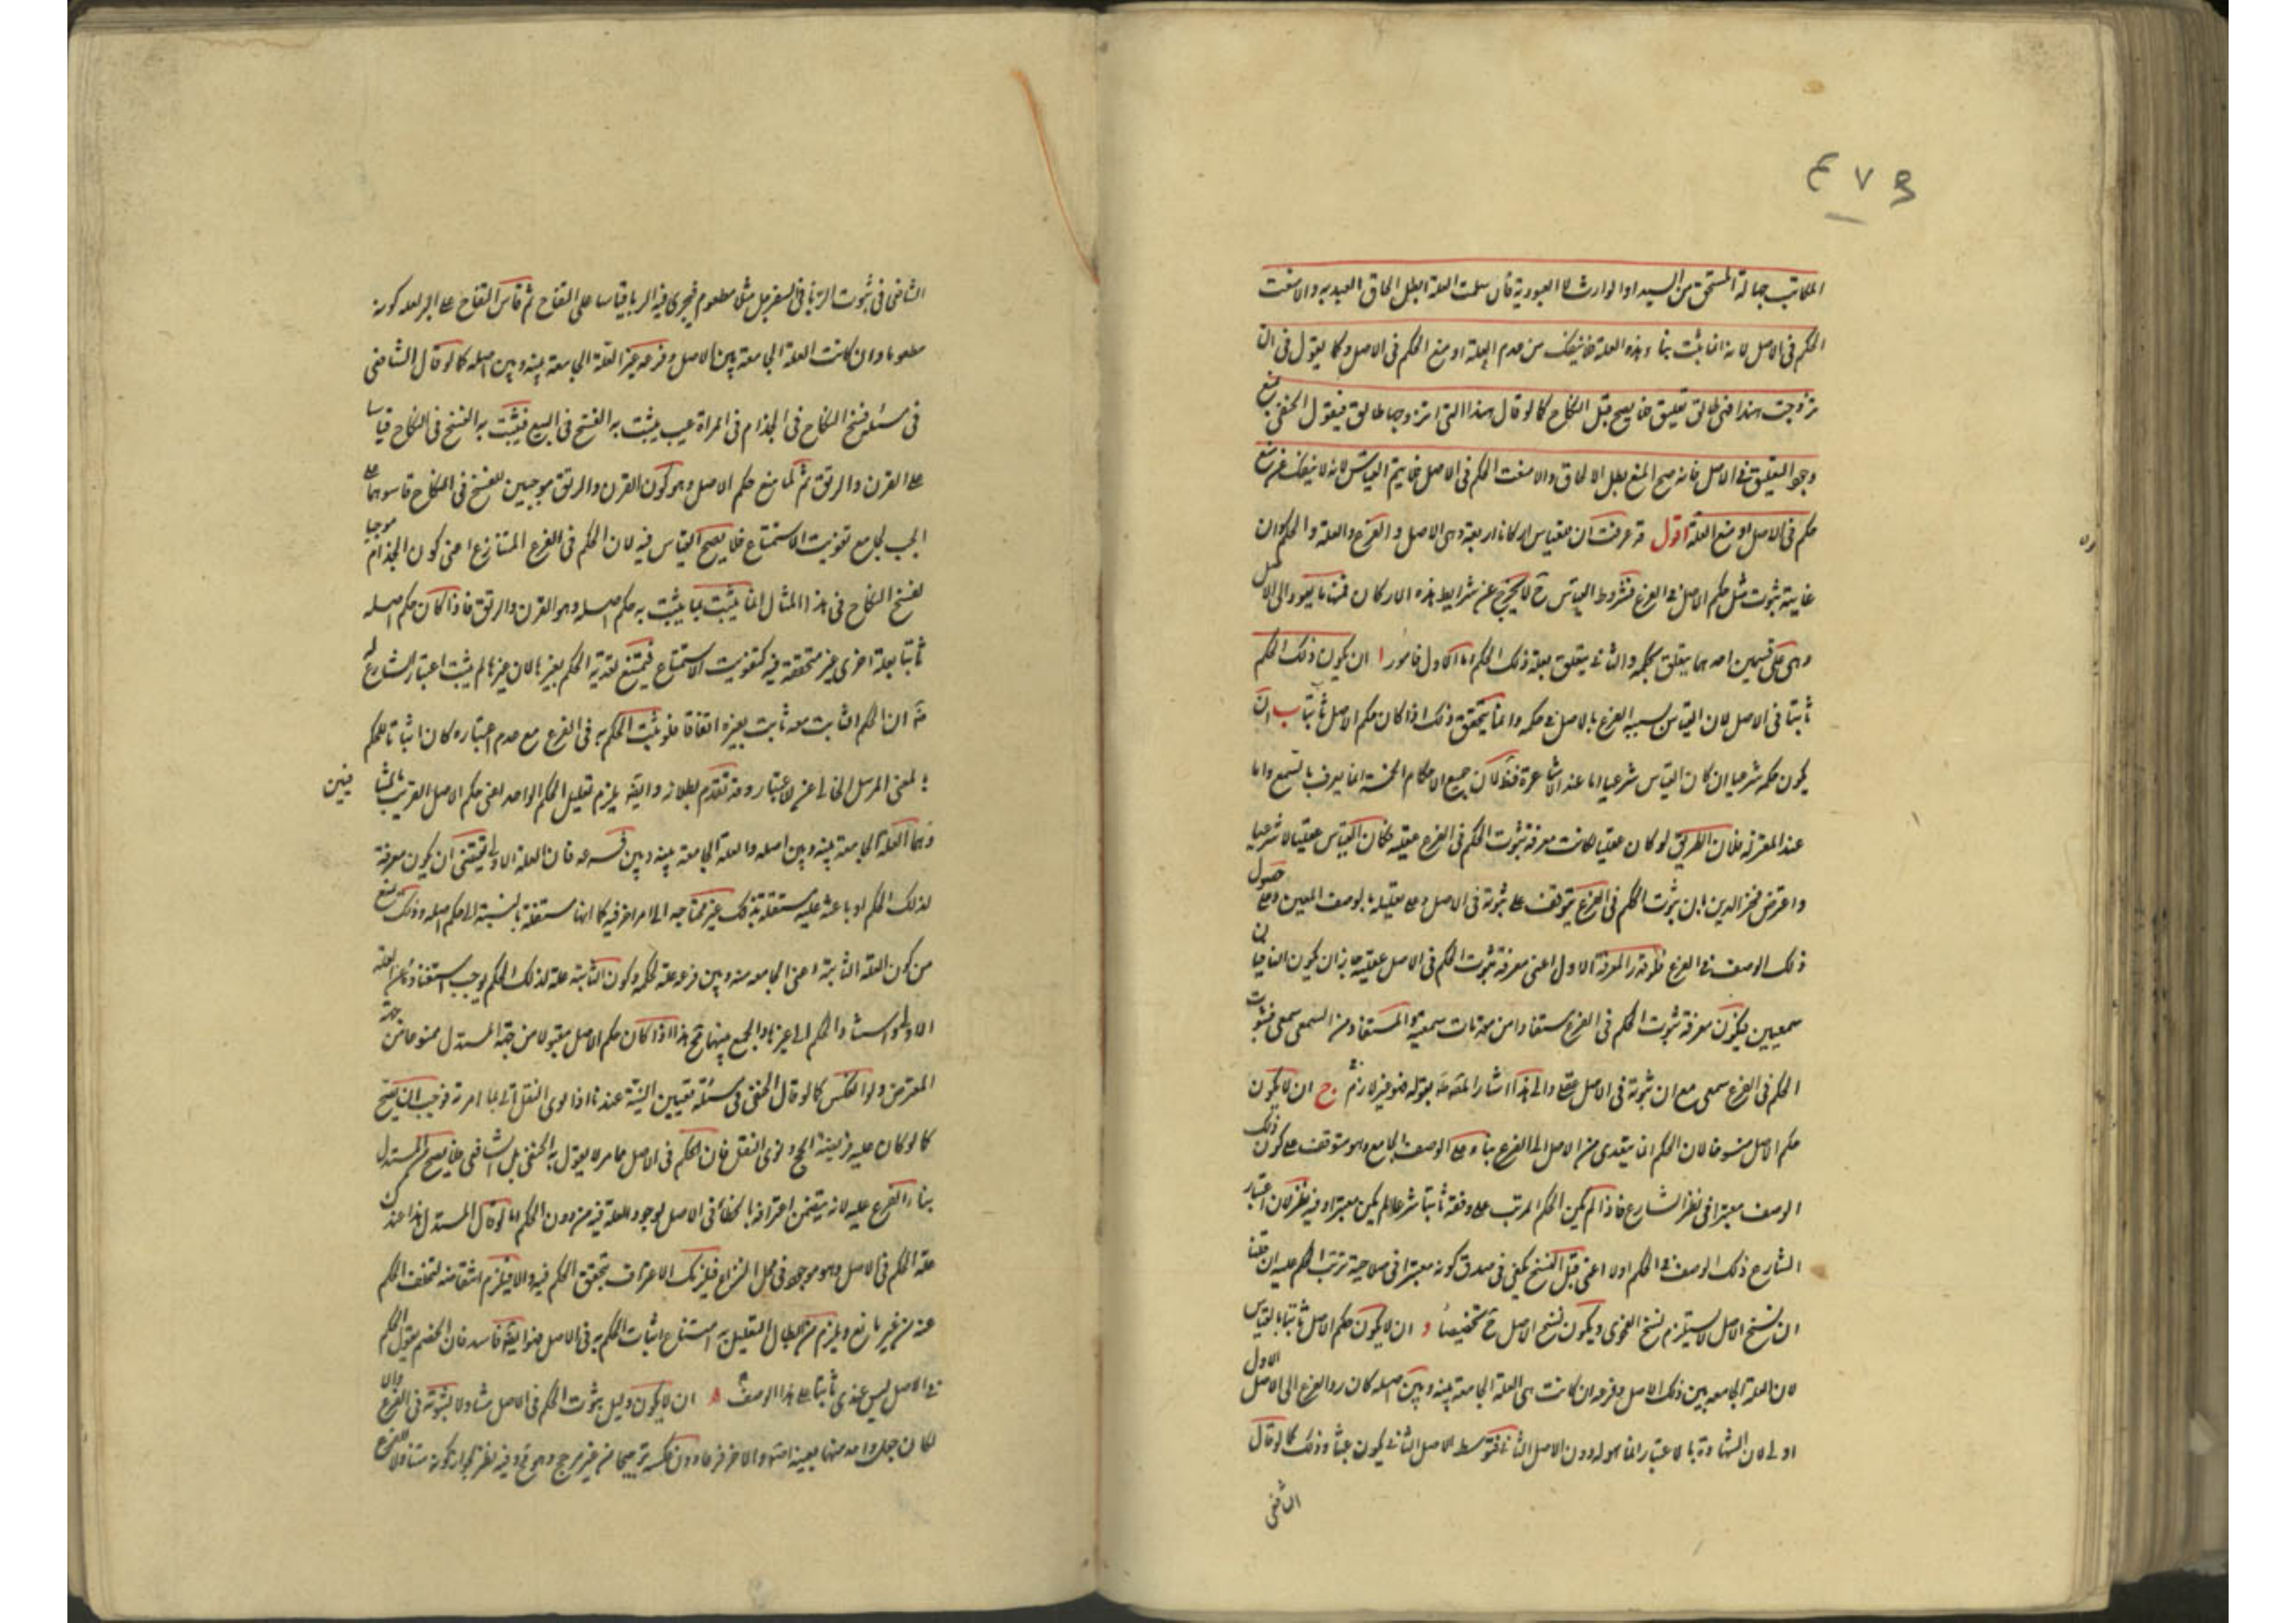 ٤٧٩
المكاتب جهالة المستحق من السيد او الوارث لا العبودية فان سلمت العلة بطل الحاق العبد به والا منعت
الحكم في الاصل لانه انما يثبت بناء بهذه العلة فلا ينفك من عدم العلة او منع الحكم في الاصل وكما يقول في ان
تزوجت هندا فهي طالق تعليق فلا يصح قبل النكاح كما لو قال هندا التي اتزوجها طالق فيقول الحنفي نمنع
وجود التعليق في الاصل فانه صح المنع بطل الالحاق والا منعت الحكم في الاصل فلا يتم القياس لانه لا ينفك عن منع
حكم في الاصل او منع العلة اقول قد عرفت ان للقياس اركانا اربعة وهي الاصل والفرع والعلة والحكم وان
غايته ثبوت مثل حكم الاصل في الفرع فشروط القياس ح لا يخرج عن شرايط هذه الاركان فمنها ما يعود الى الاصل
وهي على قسمين احدهما يتعلق بحكمه والثاني يتعلق بعلة ذلك الحكم اما الاول فامور ا ان يكون ذلك الحكم
ثابتا في الاصل لان القياس تشبيه الفرع بالاصل في حكمه وانما يتحقق ذلك اذا كان حكم الاصل ثابتا ب ان
يكون حكمه شرعيا ان كان القياس شرعيا اما عند الاشاعرة فظ لان جميع الاحكام الخمسة انما يعرف بالسمع واما
عند المعتزلة فلان الطريق لو كان عقليا لكانت معرفة ثبوت الحكم في الفرع عقلية فكان القياس عقليا لا شرعيا
واعترض فخر الدين بان ثبوت الحكم في الفرع يتوقف على ثبوته في الاصل وعلى تعليله بالوصف المعين وعلى حصول
ذلك الوصف في الفرع فلو قدر المعرفة الاول اعني معرفة ثبوت الحكم في الاصل عقلية جاز ان يكون الباقيان
سمعيين فيكون معرفة ثبوت الحكم في الفرع مستفادا من مقدمات سمعية والمستفاد من السمعي سمعي فثبوت
الحكم في الفرع سمعي مع ان ثبوته في الاصل عقلي والى هذا اشار المص بقوله فهو غير لازم ج ان لا يكون
حكم الاصل منسوخا لان الحكم انما يتعدى من الاصل الى الفرع بناء على الوصف الجامع وهو متوقف على كون ذلك
الوصف معتبرا في نظر الشارع فاذا لم يكن الحكم المرتب على وفقه ثابتا شرعا لم يكن معتبرا وفيه نظر لان اعتبار
الشارع ذلك الوصف في الحكم اولا اعني قبل النسخ يكفي في صدق كونه معتبرا في صلاحية ترتب الحكم عليه ان قلنا
ان نسخ الاصل لا يستلزم نسخ الفحوى ويكون نسخ الاصل ح تخصيصا د ان لا يكون حكم الاصل ثابتا بالقياس
لان العلة الجامعة بين ذلك الاصل وفرعه ان كانت هي العلة الجامعة بينه وبين اصله كان رد الفرع الى الاصل الاول
اولى لان الشهادة بالاعتبار انما هو له دون الاصل الثاني فتوسط الاصل الثاني يكون عبثا وذلك كما لو قال
الشافعي
الشافعي في ثبوت الربا في السفرجل مثلا مطعوم فيجري فيه الربا قياسا على التفاح ثم قاس التفاح على البر لعلة كونه
مطعوما وان كانت العلة الجامعة بين الاصل وفرعه غير العلة الجامعة بينه وبين اصله كما لو قال الشافعي
في مسئلة فسخ النكاح في الجذام في المراة عيب يثبت به الفسخ في البيع فيثبت به الفسخ في النكاح قياسا
على القرن والرتق ثم لما منع حكم الاصل وهو كون القرن والرتق موجبين للفسخ في النكاح قاسوهما على
الجب بجامع تفويت الاستمتاع فلا يصح القياس فيه لان الحكم في الفرع المتنازع اعني كون الجذام موجبا
لفسخ النكاح في هذا المثال انما يثبت بما يثبت به حكم اصله وهو القرن والرتق فاذا كان حكم اصله
ثابتا بعلة اخرى غير متحققة فيه كتفويت الاستمتاع فيمتنع تعدية الحكم بغيرها لان غيرها لم يثبت اعتبار الشارع له
ان الحكم الثابت معه ثابت بغيره اتفاقا فلو ثبت الحكم به في الفرع مع عدم اعتباره كان اثباتا للحكم
بالمعنى المرسل الخالي عن الاعتبار وقد تقدم بطلانه وايضا يلزم تعليل الحكم الواحد اعني حكم الاصل القريب بعلتين
وهما العلة الجامعة بينه وبين اصله والعلة الجامعة بينه وبين فرعه فان العلة الاولى تقتضي ان يكون معرفة
لذلك الحكم او باعثة عليه مستقلة بذلك غير محتاجة الى امر اخر فيه كما انها مستقلة بالنسبة الى حكم اصله وذلك يمنع
من كون العلة الثانية اعني الجامعة بينه وبين فرعه علة لحكمه وكون الثانية علة لذلك الحكم يوجب استغناؤه عن العلة
الاولى واستناد الحكم الى غيرها والجمع بينهما مح هذا اذا كان حكم الاصل مقبولا من جهة المستدل ممنوعا من جهة
المعترض ولو انعكس كما لو قال الحنفي في مسئلة تعيين النية عندنا اذا نوى النفل اتى بما امر به فوجب ان يصح
كما لو كان عليه فريضة الحج ونوى النفل فان الحكم في الاصل مما لا يقول به الحنفي بل الشافعي فلا يصح من المستدل
بناء الفرع عليه لانه يتضمن اعترافه بالخطأ في الاصل لوجود العلة فيه من دون الحكم اما لو قال المستدل هذا عندك
علة الحكم في الاصل وهو موجود في محل النزاع فيلزمك الاعتراف بتحقق الحكم فيه والا فيلزم انتقاضه لتخلف الحكم
عنه من غير مانع ويلزم من ابطال التعليل به امتناع اثبات الحكم به في الاصل فهو ايضا فاسد فان الخصم يقول الحكم
في الاصل ليس عندي ثابتا على هذا الوصف ه ان لا يكون دليل ثبوت الحكم في الاصل متناولا لثبوته في الفرع والا
لكان جعل واحد منهما بعينه اصلا والاخر فرعا دون عكسه ترجيحا من غير مرجح وهو مح وفيه نظر لجواز كونه متناولا للفرع